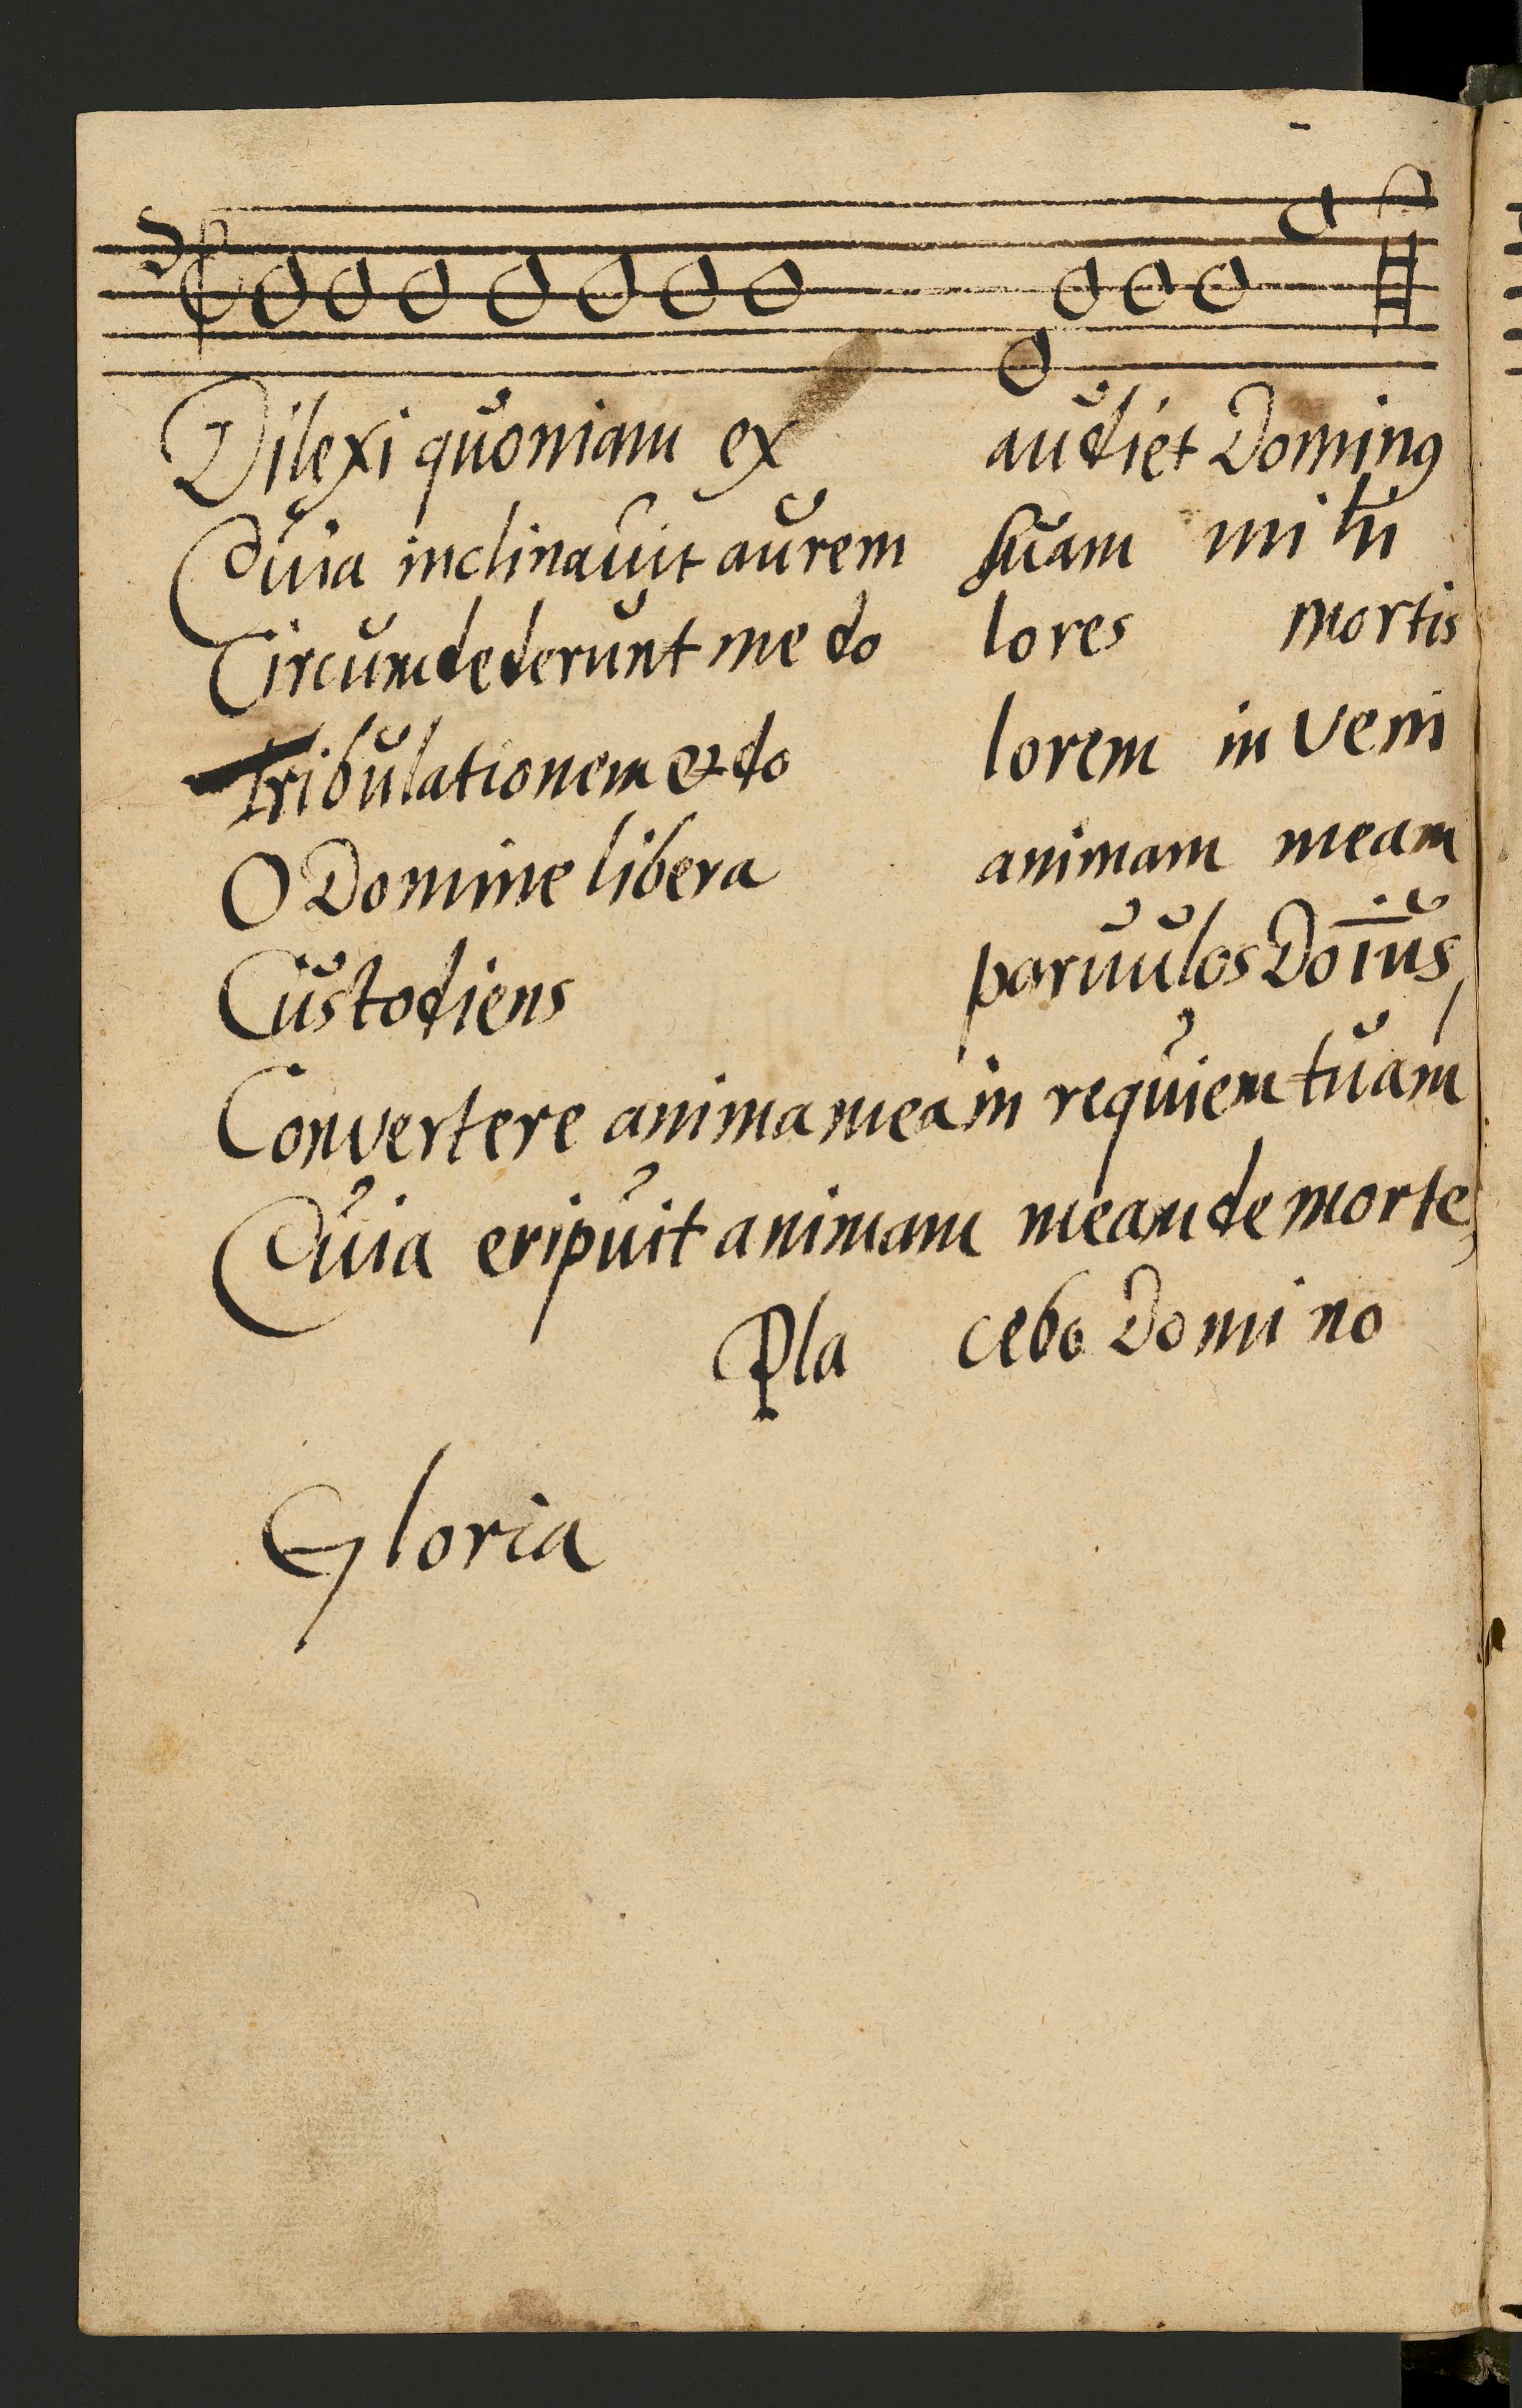 Dilexi quoniam ex audiet Dominꝯ
Quia inclinavit aurem suam mi hi
Circumdederunt me do lores mortis
Tribulationem & do lorem in veni
O Domine libera animam meam
Custodiens parvulos Doīus
Convertere anima mea in requiem tuam
Quia eripuit animam meam de morte,
Pla cebo Domi no
Gloria